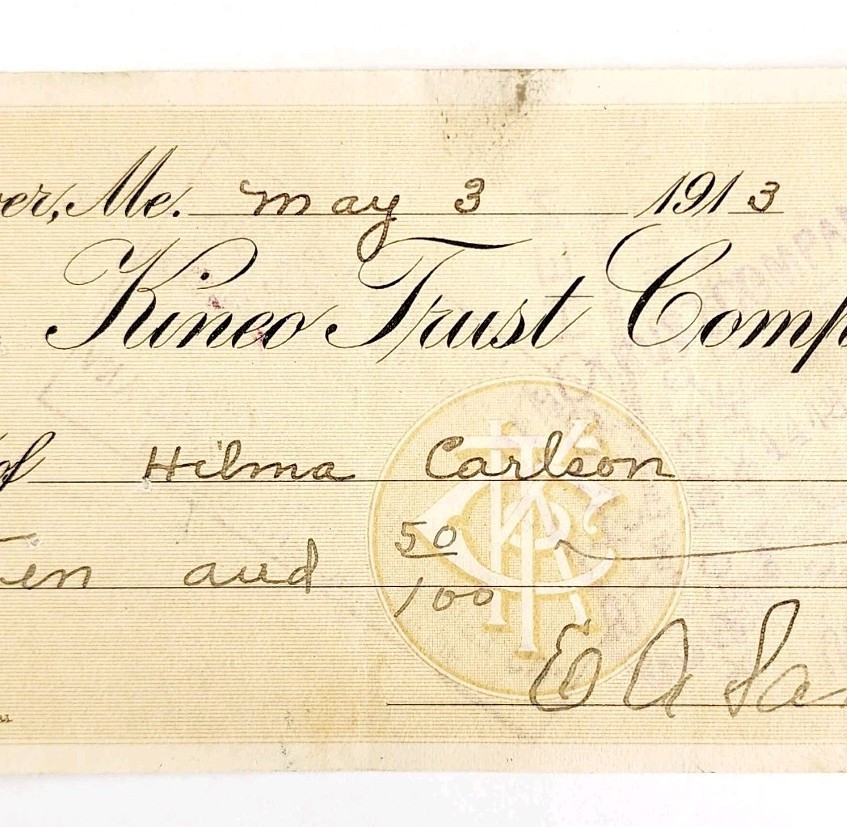 er, Me. May 3 1913
Kineo Trust Comp
of Hilma Carlson
en and 50/100
E A Sa
COMPAN